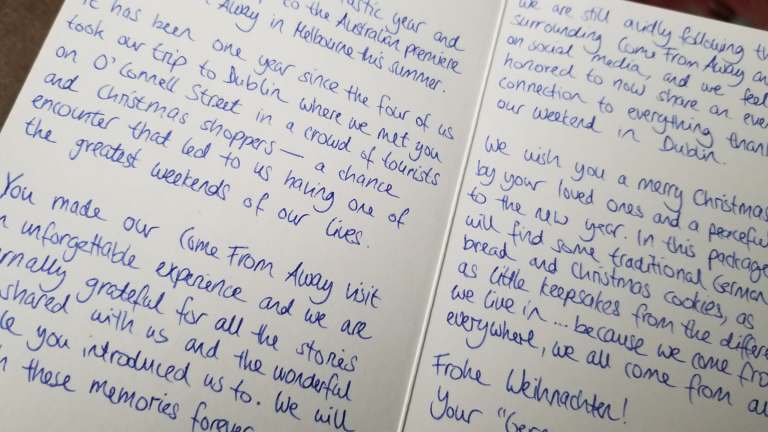 tastic year and
to the Australian premiere
Away in Melbourne this summer.
It has been one year since the four of us
took our trip to Dublin where we met you
on O'Connell Street in a crowd of tourists
and Christmas shoppers — a chance
encounter that led to us having one of
the greatest weekends of our lives.
You made our Come From Away visit
unforgettable experience and we are
grateful for all the stories
shared with us and the wonderful
you introduced us to. We will
these memories forever
we are still avidly following
surrounding Come From Away
on social media, and we feel
honored to now share an
connection to everything
our weekend in Dublin.
We wish you a merry Christmas
by your loved ones and a peaceful
to the new year. In this package
will find some traditional German
bread and Christmas cookies, as
as little keepsakes from the
we live in... because we come
everywhere, we all come from
Frohe Weihnachten!
Your